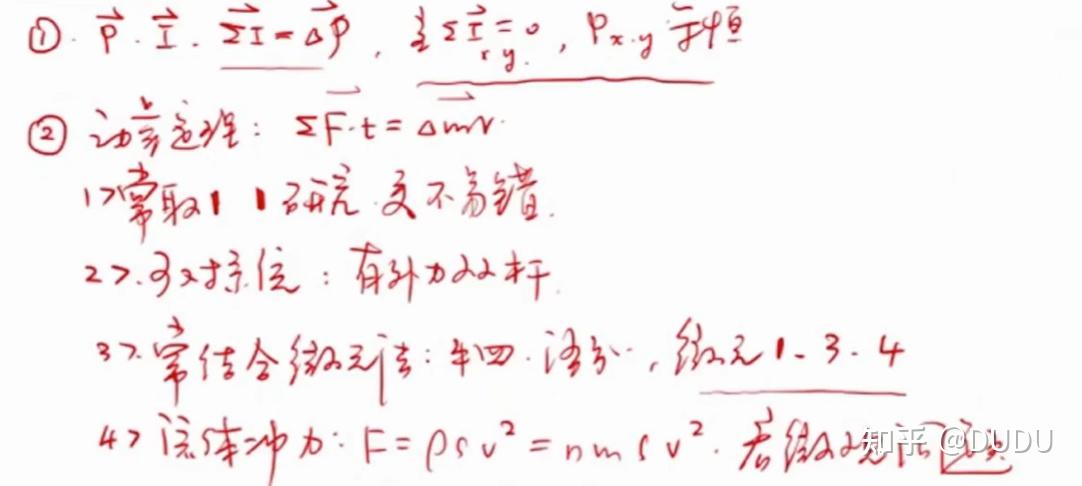 ① P⃗ . I⃗ . ΣI⃗ = ΔP⃗ , 当 ΣI⃗ = 0 , Px.y 守恒
x y.
② 动量定理: ΣF⃗·t = Δmv⃗.
1>常取 1 1 研究.更不易错.
2>.可对系统: 有外力双杆.
3>.常结合微元法: 牛四. , 微元1、3、4
4>流体冲力: F = ρsv² = nmsv². 微观
知乎 @DUDU